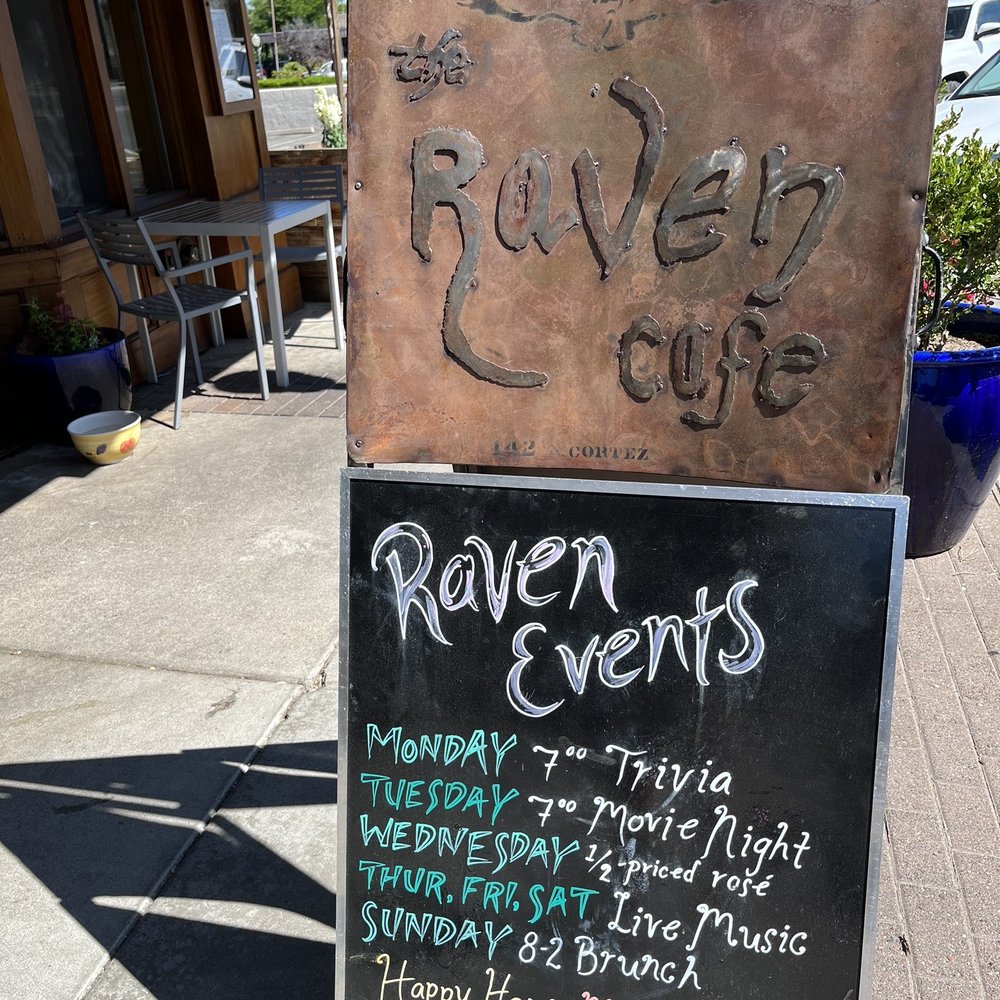 the
Raven
cafe
142 N CORTEZ
Raven
Events
MONDAY 7⁰⁰ Trivia
TUESDAY 7⁰⁰ Movie Night
WEDNESDAY 1/2-priced rosé
THUR, FRI, SAT Live Music
SUNDAY 8-2 Brunch
Happy